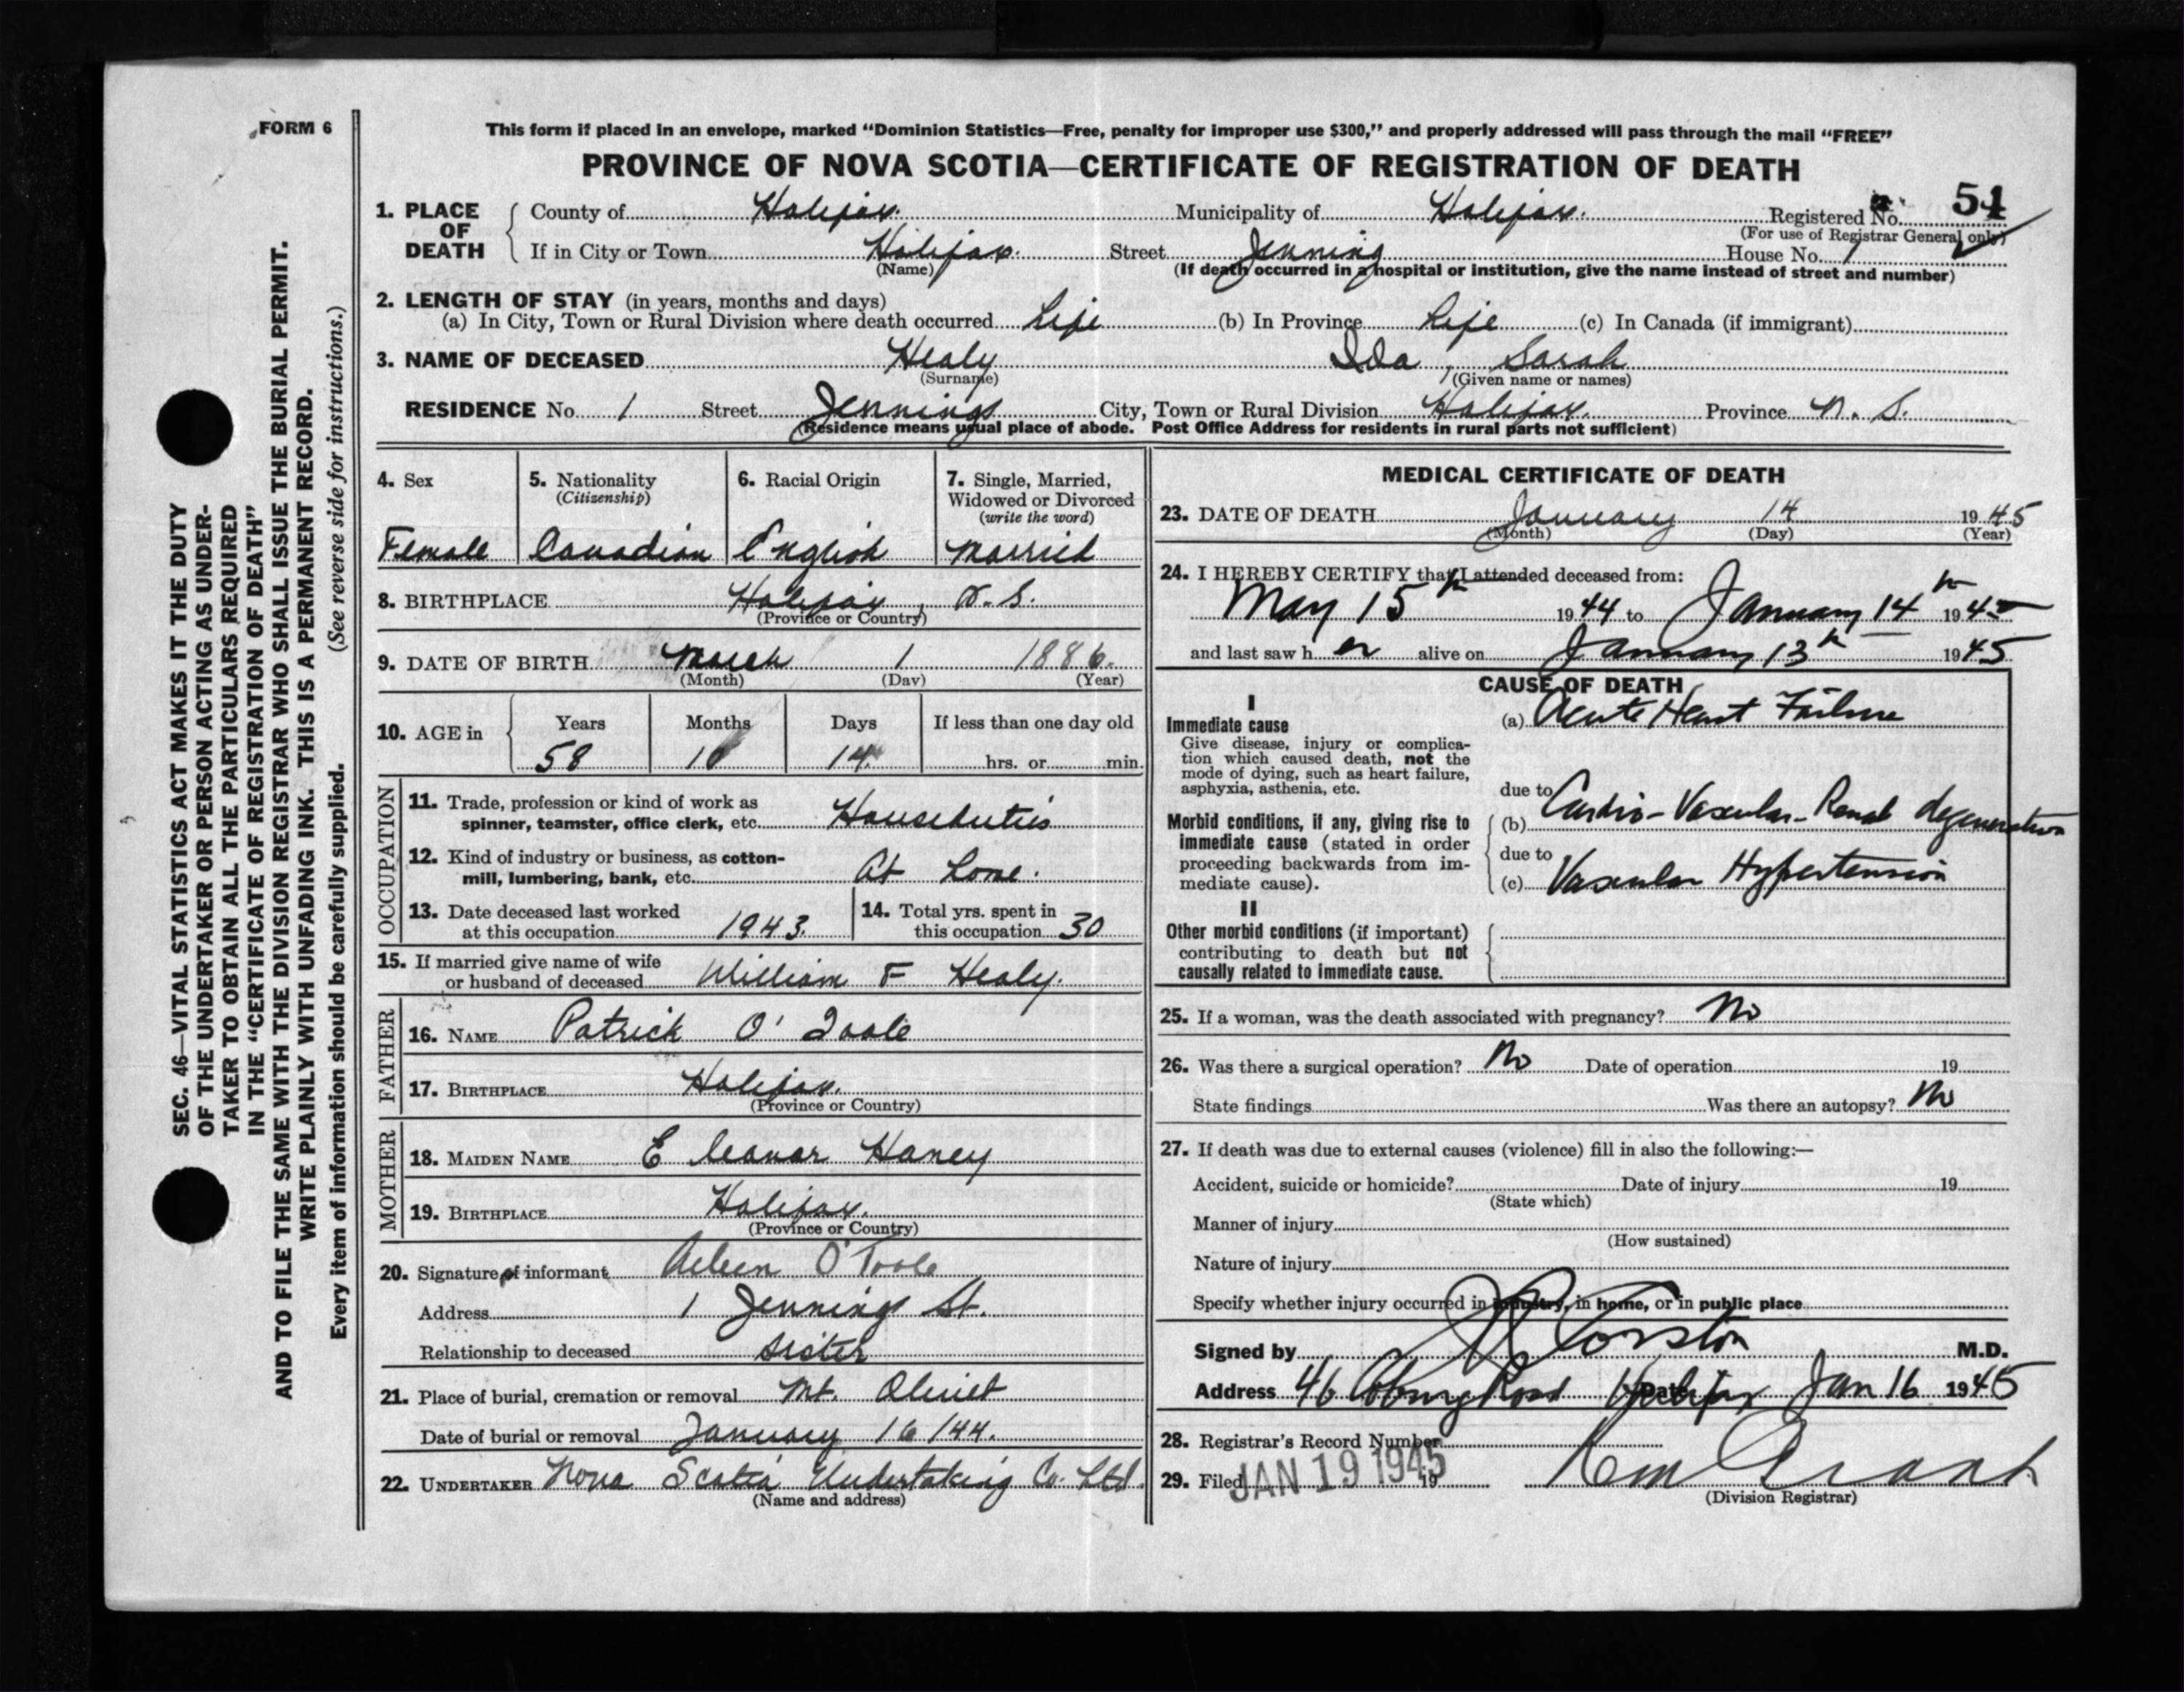 FORM 6
This form if placed in an envelope, marked "Dominion Statistics—Free, penalty for improper use $300," and properly addressed will pass through the mail "FREE"
PROVINCE OF NOVA SCOTIA—CERTIFICATE OF REGISTRATION OF DEATH
1. PLACE OF DEATH
County of Halifax. Municipality of Halifax. Registered No. 51
(For use of Registrar General only)
If in City or Town Halifax. Street Jenning House No. 1
(Name) (If death occurred in a hospital or institution, give the name instead of street and number)
2. LENGTH OF STAY (in years, months and days)
(a) In City, Town or Rural Division where death occurred Life (b) In Province Life (c) In Canada (if immigrant)
3. NAME OF DECEASED Healy Ida, Sarah
(Surname) (Given name or names)
RESIDENCE No. 1 Street Jennings City, Town or Rural Division Halifax. Province N. S.
(Residence means usual place of abode. Post Office Address for residents in rural parts not sufficient)
4. Sex
Female
5. Nationality
(Citizenship)
Canadian
6. Racial Origin
English
7. Single, Married,
Widowed or Divorced
(write the word)
Married
8. BIRTHPLACE Halifax, N.S.
(Province or Country)
9. DATE OF BIRTH March 1 1886.
(Month) (Day) (Year)
10. AGE in Years Months Days If less than one day old
58 10 14 hrs. or min.
OCCUPATION
11. Trade, profession or kind of work as
spinner, teamster, office clerk, etc. Houseduties
12. Kind of industry or business, as cotton-
mill, lumbering, bank, etc. At Home.
13. Date deceased last worked
at this occupation 1943.
14. Total yrs. spent in
this occupation 30
15. If married give name of wife
or husband of deceased William F Healy.
FATHER
16. NAME Patrick O'Toole
17. BIRTHPLACE Halifax.
(Province or Country)
MOTHER
18. MAIDEN NAME Eleanor Haney
19. BIRTHPLACE Halifax.
(Province or Country)
20. Signature of informant Aileen O'Toole
Address 1 Jennings St.
Relationship to deceased sister
21. Place of burial, cremation or removal Mt. Olivet
Date of burial or removal January 16/44.
22. UNDERTAKER Nova Scotia Undertaking Co. Ltd.
(Name and address)
MEDICAL CERTIFICATE OF DEATH
23. DATE OF DEATH January 14 1945
(Month) (Day) (Year)
24. I HEREBY CERTIFY that I attended deceased from:
May 15th 1944 to January 14th 1945
and last saw her alive on January 13th 1945
CAUSE OF DEATH
I
Immediate cause
Give disease, injury or complica-
tion which caused death, not the
mode of dying, such as heart failure,
asphyxia, asthenia, etc.
(a) Acute Heart Failure
due to
Morbid conditions, if any, giving rise to
immediate cause (stated in order
proceeding backwards from im-
mediate cause).
(b) Cardio-Vascular-Renal degeneration
due to
(c) Vascular Hypertension
II
Other morbid conditions (if important)
contributing to death but not
causally related to immediate cause.
25. If a woman, was the death associated with pregnancy? No
26. Was there a surgical operation? No Date of operation 19
State findings Was there an autopsy? No
27. If death was due to external causes (violence) fill in also the following:—
Accident, suicide or homicide? Date of injury 19
(State which)
Manner of injury
(How sustained)
Nature of injury
Specify whether injury occurred in industry, in home, or in public place
Signed by Corston M.D.
Address 46 Coburg Road Halifax Date Jan 16 1945
28. Registrar's Record Number
29. Filed JAN 19 1945 19
(Division Registrar)
SEC. 46—VITAL STATISTICS ACT MAKES IT THE DUTY
OF THE UNDERTAKER OR PERSON ACTING AS UNDER-
TAKER TO OBTAIN ALL THE PARTICULARS REQUIRED
IN THE "CERTIFICATE OF REGISTRATION OF DEATH"
AND TO FILE THE SAME WITH THE DIVISION REGISTRAR WHO SHALL ISSUE THE BURIAL PERMIT.
WRITE PLAINLY WITH UNFADING INK. THIS IS A PERMANENT RECORD.
Every item of information should be carefully supplied. (See reverse side for instructions.)